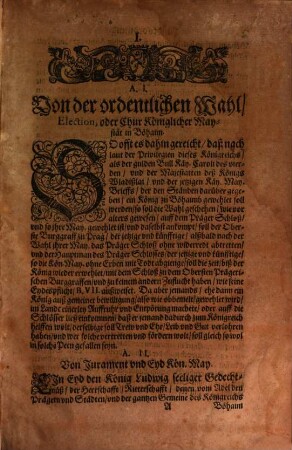 I.
A. I.
Von der ordentlichen Wahl/
Election, oder Chur Königlicher May-
stät in Böhaim
SO ist es dahin gericht/ daß nach
laut der Privilegien dieses Königreichs/
als der gulden Bull Käy. Caroli des vierd-
ten / und der Majestaten deß Königs
Wladißlai / und der jetzigen Käy. May.
Brieffs / der den Ständen darüber gege-
ben / ein König zu Böhaimb gewehlet soll
werden/ so soll die Wahl geschehen/ wie vor
alters gewesen/ auff dem Präger Schloß/
und so jhr May. gewehlet ist/ und daselbst ankompt/ soll der Ober-
ste Burggraff zu Prag/ der jetzige und künfftige/ alßbald nach der
Wahl jhrer May. das Präger Schloß ohne widerredt abtretten/
und der Hauptman des Präger Schlosses/ der jetzige und künfftige/
so die Kön. May. ohne Erben mit Todt abgieng/ soll die zeit/ biß der
König wieder erwehlet/ mit dem Schloß zu dem Obersten Prägeri-
schen Burggraffen/ und zu keinem andern Zuflucht haben/ wie seine
Eydespflicht B. VII. außweiset. Da aber jemand/ ehe dann ein
König auß gemeiner bewilligung/ also wie obbemelt/ gewehlet wird/
im Lande einerley Auffruhr und Entpörung machete/ oder auff die
Schlösser
helffen wolt/ derselbige soll Trew und Ehr/ Leib und Gut verlohren
haben/ und wer solche vertretten und fördern wolt/ soll gleich so wol
in solche Peen gefallen seyn.
A. II.
Von Jurament und Eyd Kön. May.
EIn Eyd den König Ludwig seeliger Gedecht-
nüß/ der Herrschafft/ Ritterschafft/ denen vom Adel den
Prägern und Städten/ und der gantzen Gemeine des Königreichs
A Böhaim